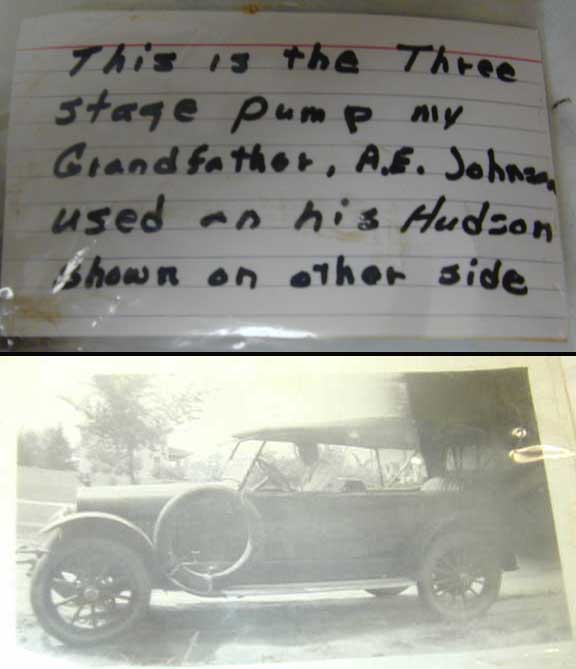 This is the Three
stage pump my
Grandfather, A.E. Johnson
used on his Hudson
shown on other side